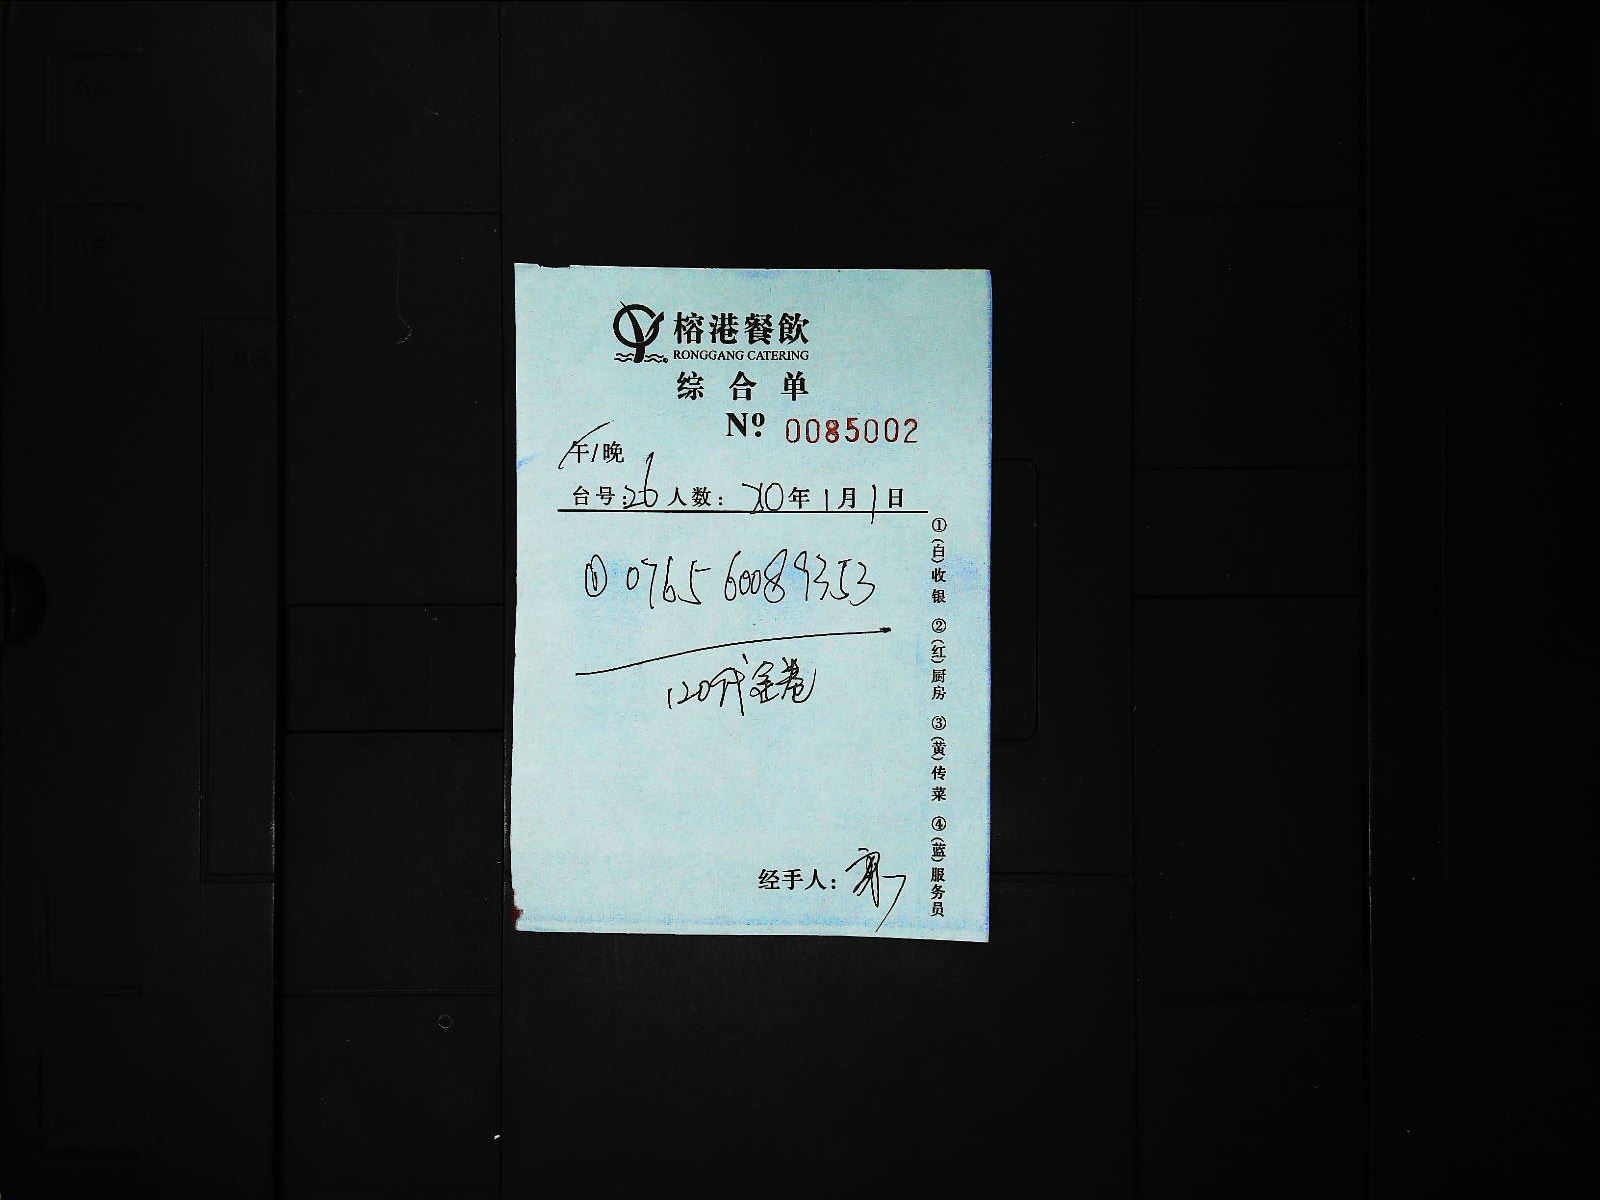 榕港餐飲
RONGGANG CATERING
综合单
Nº 0085002
午/晚
台号:26 人数: 20年1月1日
① 0765 60089353
120代金卷
经手人:
①(白)收银 ②(红)厨房 ③(黄)传菜 ④(蓝)服务员